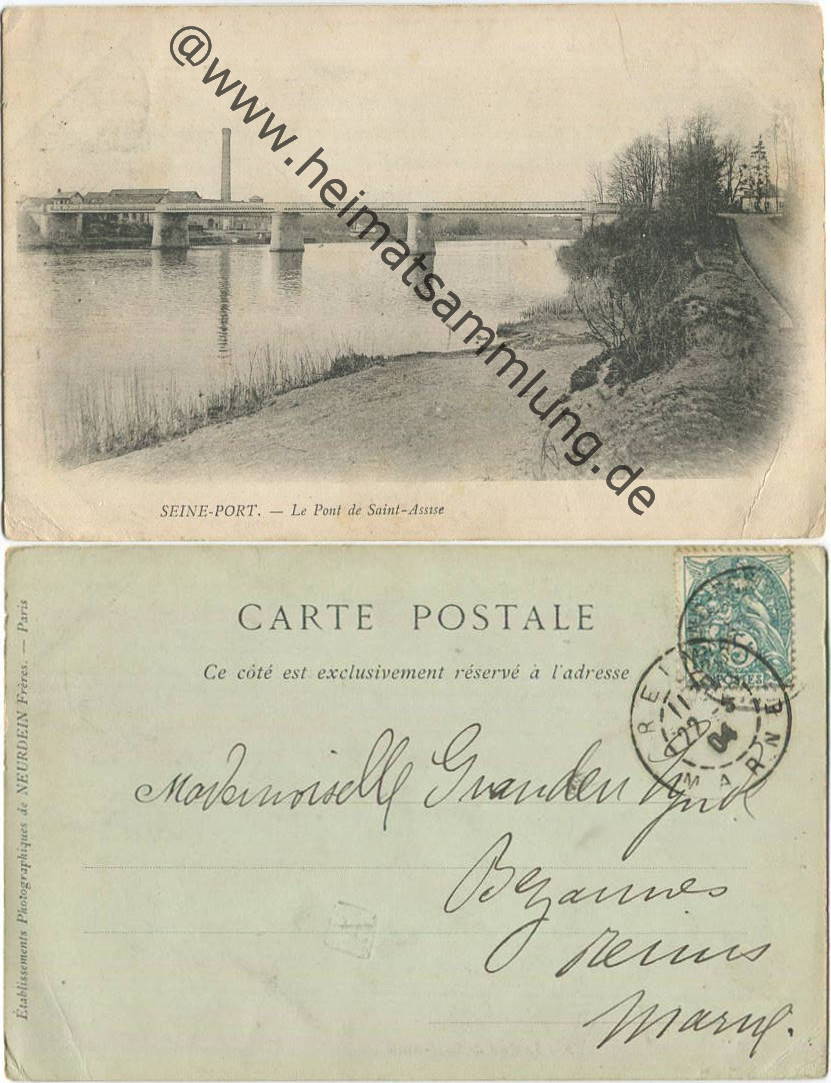 @www.heimatsammlung.de
SEINE-PORT. — Le Pont de Saint-Assise
CARTE POSTALE
Ce côté est exclusivement réservé à l'adresse
Établissements Photographiques de NEURDEIN Frères. — Paris
POSTES
5
REI
11
22 5
04
MARNE
Mademoiselle
Bezannes
Reims
Marne.